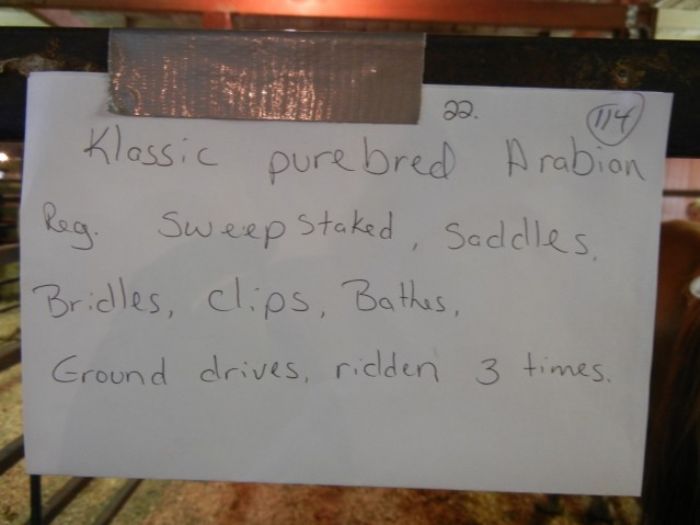 22. 114
Klassic purebred Arabian
Reg. Sweepstaked, Saddles,
Bridles, clips, Bathes,
Ground drives, ridden 3 times.